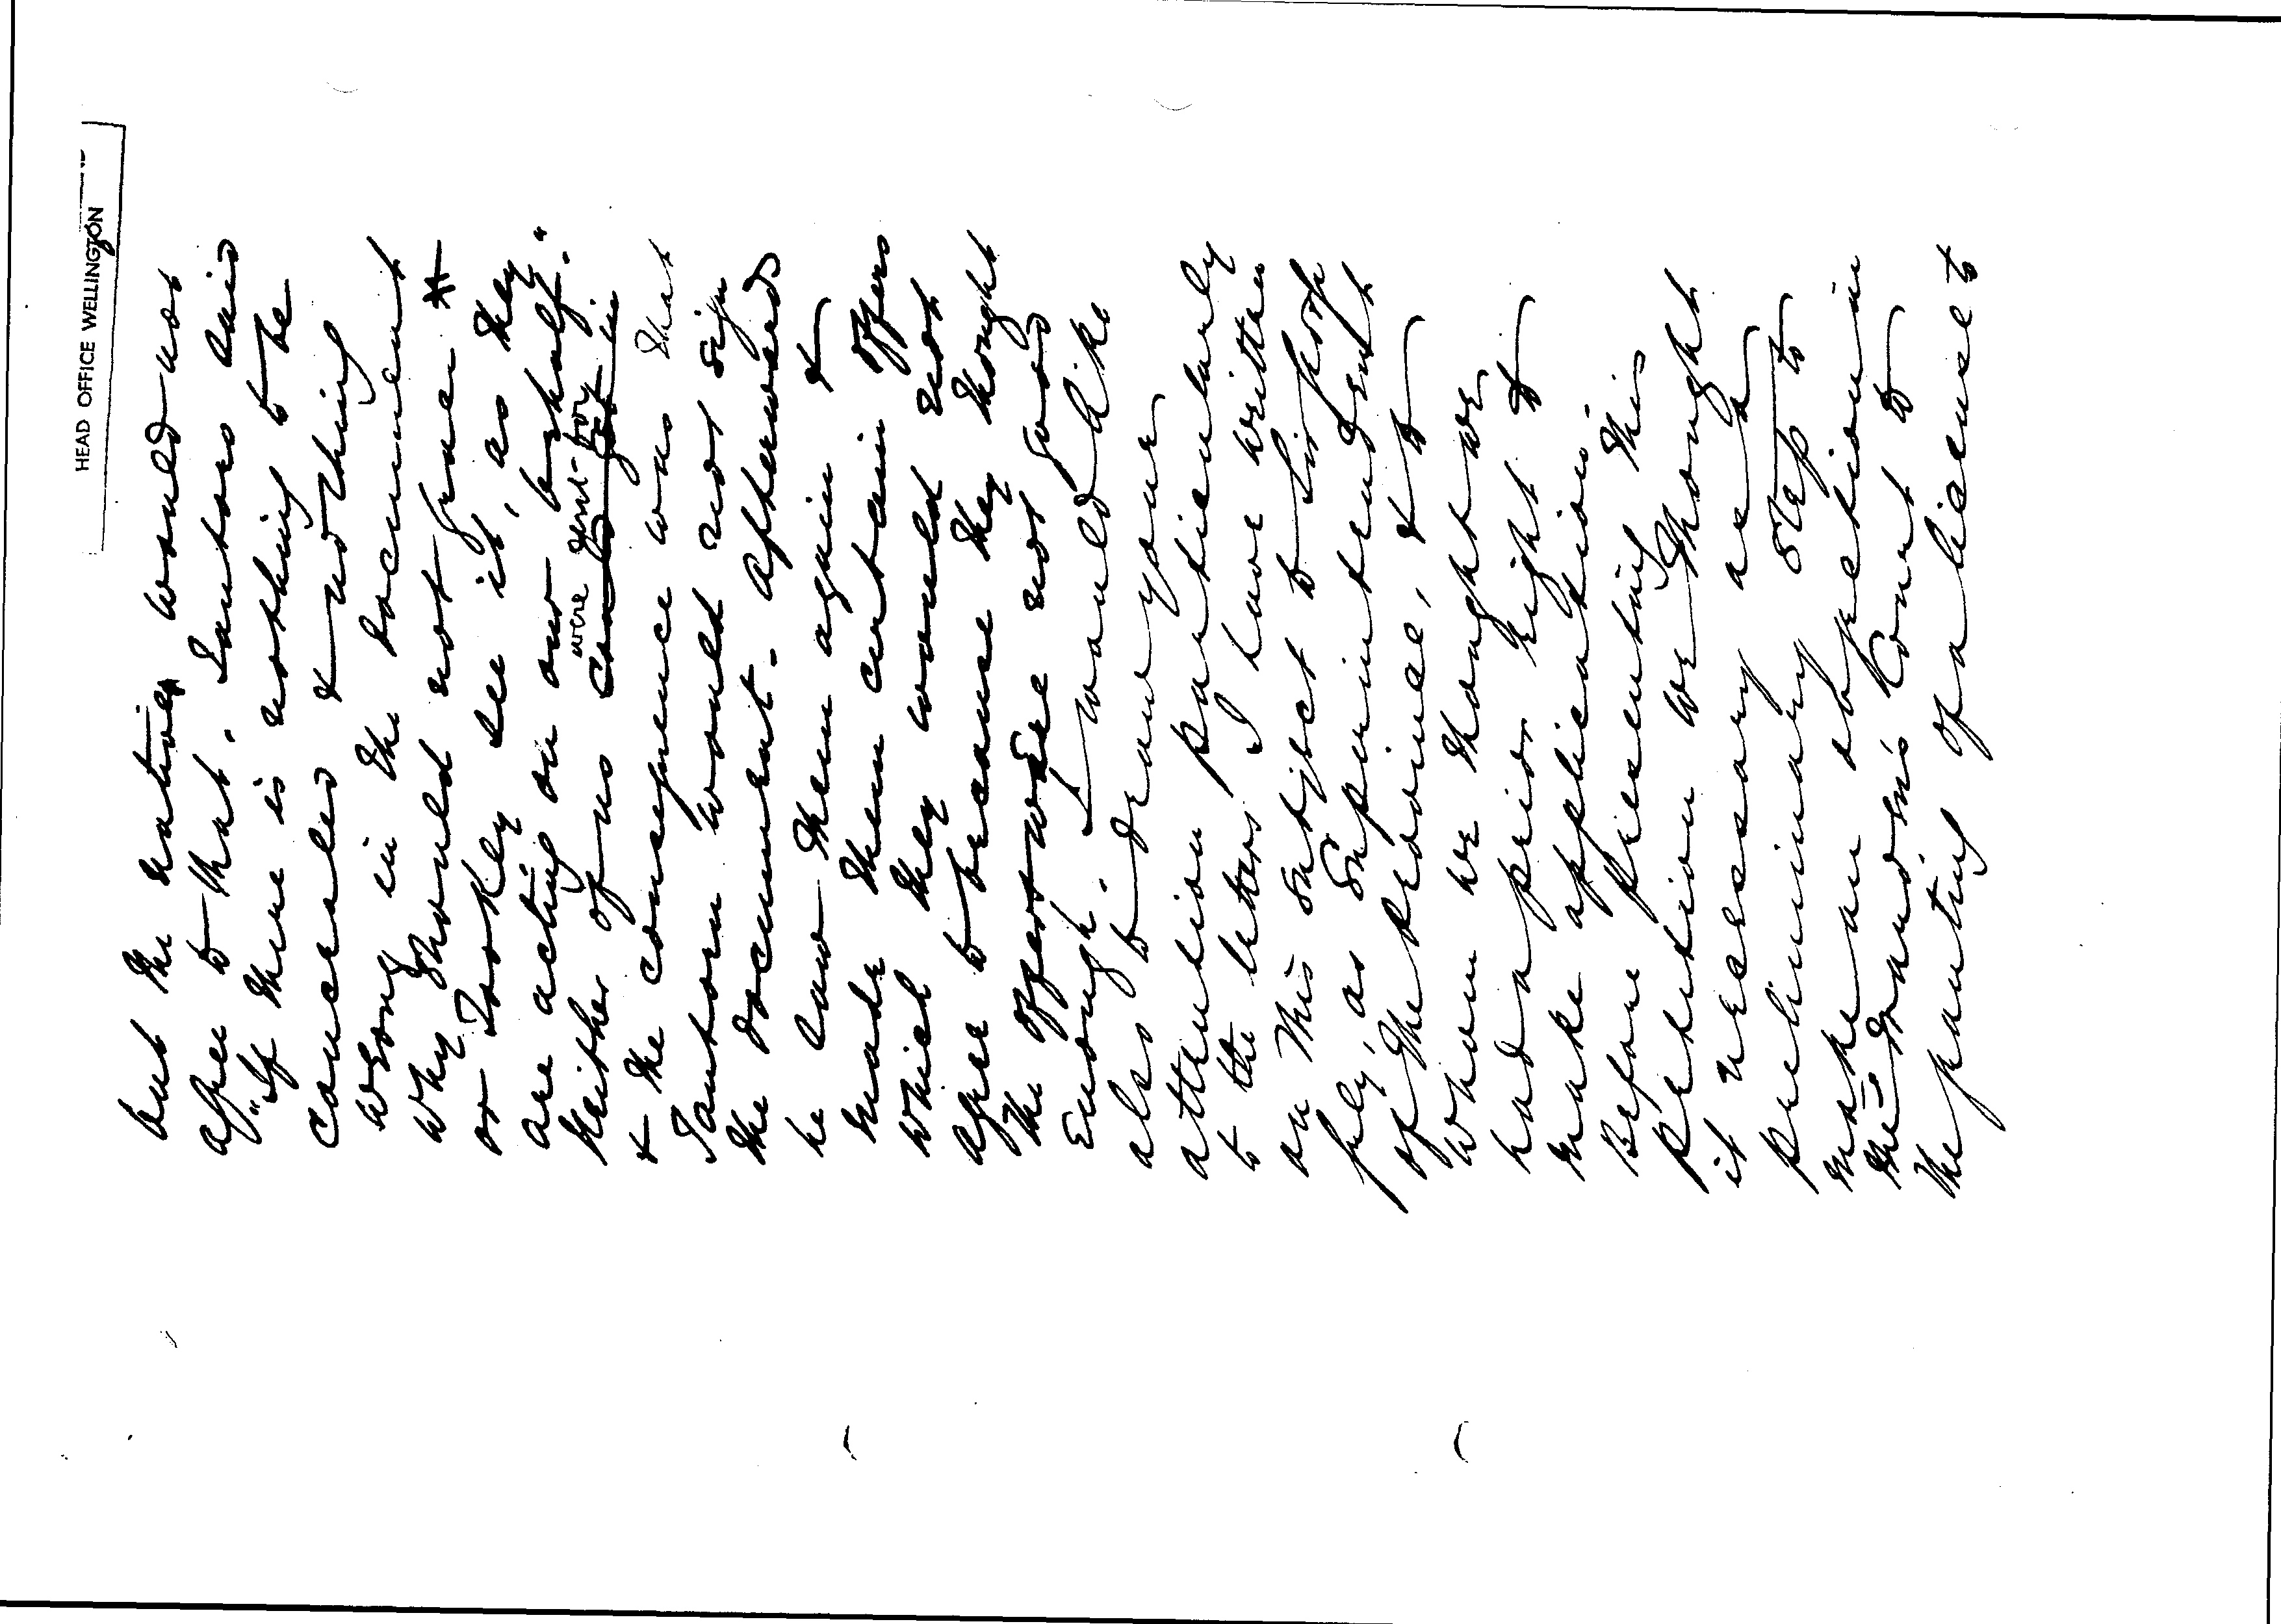 HEAD OFFICE WELLINGTON
but the natives would not
agree to that. Santoro said
"If there is nothing to be
concealed & nothing
wrong in the document
why should not Grace
or Lockley see it, as they
are acting on our behalf."
were sent for
Neither of us could get in
& the consequence was that
Santoro would not sign
the document. Afterwards
he saw them again &
made them certain offers
which they would not
agree to because they thought
the offers were not good
enough. I would like
also to draw your
attention particularly
to the letters I have written
on this subject to
as Superintendent
of the Province, & to
whom we thought we
had a prior right to
make application.
Before presenting this
petition we thought
it necessary as a
preliminary step to
make an objection in
the Court to
the granting of a license to